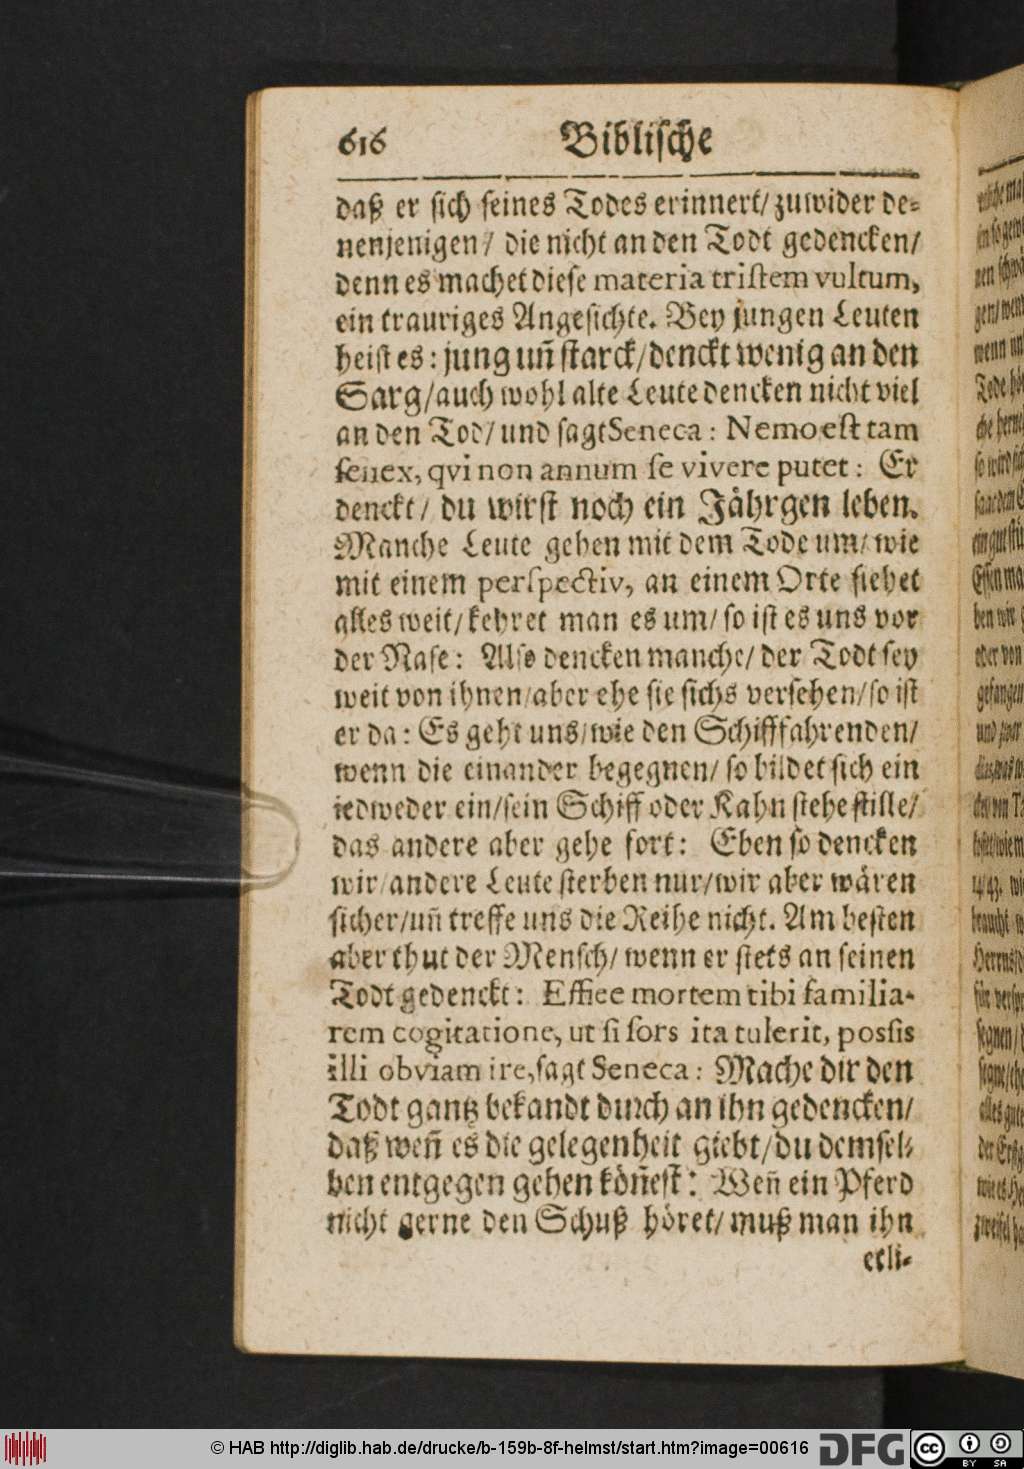 616 Biblische
daß er sich seines Todes erinnert/ zuwider de-
nenjenigen/ die nicht an den Todt gedencken/
denn es machet diese materia tristem vultum,
ein trauriges Angesichte. Bey jungen Leuten
heist es: jung uñ starck/ denckt wenig an den
Sarg/ auch wohl alte Leute dencken nicht viel
an den Tod/ und sagt Seneca: Nemo est tam
senex, qvi non annum se vivere putet: Er
denckt/ du wirst noch ein Jährgen leben.
Manche Leute gehen mit dem Tode um/ wie
mit einem perspectiv, an einem Orte siehet
alles weit/ kehret man es um/ so ist es uns vor
der Nase: Also dencken manche/ der Todt sey
weit von ihnen/ aber ehe sie sichs versehen/ so ist
er da: Es geht uns/ wie den Schifffahrenden/
wenn die einander begegnen/ so bildet sich ein
iedweder ein/ sein Schiff oder Kahn stehe stille/
das andere aber gehe fort: Eben so dencken
wir/ andere Leute sterben nur/ wir aber wären
sicher/ uñ treffe uns die Reihe nicht. Am besten
aber thut der Mensch/ wenn er stets an seinen
Todt gedenckt: Effice mortem tibi familia-
rem cogitatione, ut si sors ita tulerit, possis
illi obviam ire, sagt Seneca: Mache dir den
Todt gantz bekandt durch an ihn gedencken/
daß weñ es die gelegenheit giebt/ du demsel-
ben entgegen gehen köñest: Weñ ein Pferd
nicht gerne den Schuß höret/ muß man ihn
etli-
© HAB http://diglib.hab.de/drucke/b-159b-8f-helmst/start.htm?image=00616
DFG
cc BY SA